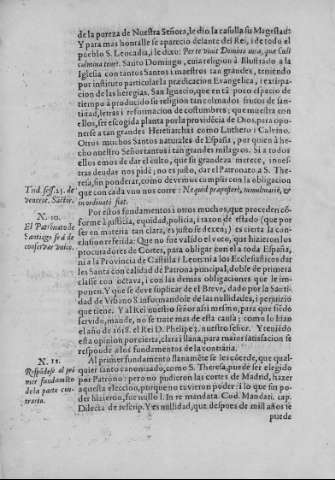 de la pureza de Nuestra Señora, le dio la casulla su Magestad:
Y para mas honralle se aparecio delante del Rei, i de todo el
pueblo S. Leocadia, i le dixo: Per te vivit Domina mea, que
culmina tenet. Santo Domingo, cuia religion à Illustrado a la
Iglesia con tantos Santos i maestros tan grandes, teniendo
por instituto particular la predicacion Evangelica, i extirpa-
cion de las heregias. San Ignacio, que en tā poco espacio de
tiempo à producido su religion tan colmados frutos de san-
tidad, letras i reformacion de costumbres; que muestra con
ellos, ser escogida planta por la providēcia de Dios, para opo-
nerse a tan grandes Heresiarchas como Luthero i Calvino.
Otros muchos Santos naturales de España, por quien à he-
cho nuestro Señor tantos i tan grandes milagros. Si a todos
ellos emos de dar el culto, que su grandeza merece, i nues-
tras deudas nos pidē; no es justo, dar el Patronato a S. The-
resa, sin ponderar, como devemos cumplir con la obligacion
Trid. sess. 25. de
que con cada uno nos corre: Ne quid præposterè, tumultuariè, &
inordinatè fiat.
N. 10.
Por estos fundamentos i otros muchos, que proceden cō-
El Patronato de
forme a justicia, equidad, policia, i razon de estado (que por
Santiago se à de
ser en materia tan clara, es justo se dexen;) es cierta la con-
conservar solo.
clusion referida: Que no fue valido el voto, que hizieron los
procuradores de Cortes, para obligar con el a toda España,
ni a la Provincia de Castilla i Leon; ni a los Ecclesiasticos dar
les Santa con calidad de Patrona principal, doble de primera
clase con octava, i con las demas obligaciones que le im-
ponen. Y que se deve suplicar de el Breve, dado por la Santi-
dad de Urbano 8. informandole de las nullidades, i perjuizio
que tiene. I al Rey nuestro señor asimismo, para que siēdo
servido, mande, no se trate mas de esta causa; como lo hizo
el año de 1618. el Rei D. Phelipe 3. nuestro señor. Y teniēdo
esta opinion por cierta, clara i llana, para maior satisfacion se
responde a los fundamentos de la contraria.
N. 11.
Al primer fundamento llanamēte se les cōcede, que qual-
Respōdese al pri
quier santo canonizado, como S. Theresa, puede ser elegido
mer fundamēto
por Patrono: pero no pudieron las cortes de Madrid, hazer
de la parte con-
aquesta eleccion, porque no tuvieron poder: i lo que sin po-
traria.
der hizieron, fue nullo l. In re mandata. Cod. Mandati. cap.
Dilecta de rescrip. Y es nullidad, que despues de mil años se
puede